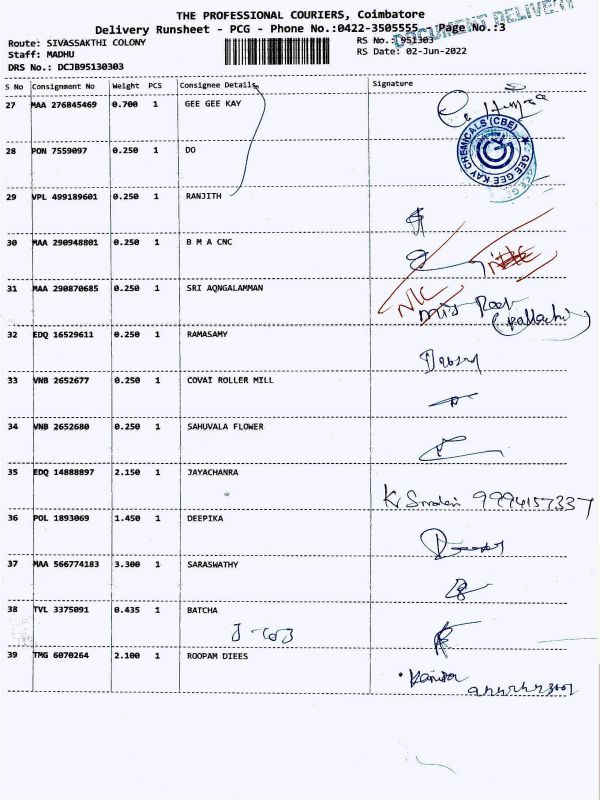 THE PROFESSIONAL COURIERS, Coimbatore
DOCUMENT DELIVERY
Delivery Runsheet - PCG - Phone No.:0422-3505555 Page No.:3
Route: SIVASSAKTHI COLONY RS No.: 951303
Staff: MADHU RS Date: 02-Jun-2022
DRS No.: DCJB95130303
S No Consignment No Weight PCS Consignee Details Signature
27 MAA 276845469 0.700 1 GEE GEE KAY
GEE GEE KAY CHEMICALS (CBE)
28 PON 7559097 0.250 1 DO
29 VPL 499189601 0.250 1 RANJITH
30 MAA 290948801 0.250 1 B M A CNC
31 MAA 290870685 0.250 1 SRI AQNGALAMMAN
N/C
(pallachi)
32 EDQ 16529611 0.250 1 RAMASAMY
33 VNB 2652677 0.250 1 COVAI ROLLER MILL
34 VNB 2652680 0.250 1 SAHUVALA FLOWER
35 EDQ 14888897 2.150 1 JAYACHANRA
9994157337
36 POL 1893069 1.450 1 DEEPIKA
37 MAA 566774183 3.300 1 SARASWATHY
38 TVL 3375091 0.435 1 BATCHA
39 TMG 6070264 2.100 1 ROOPAM DIEES